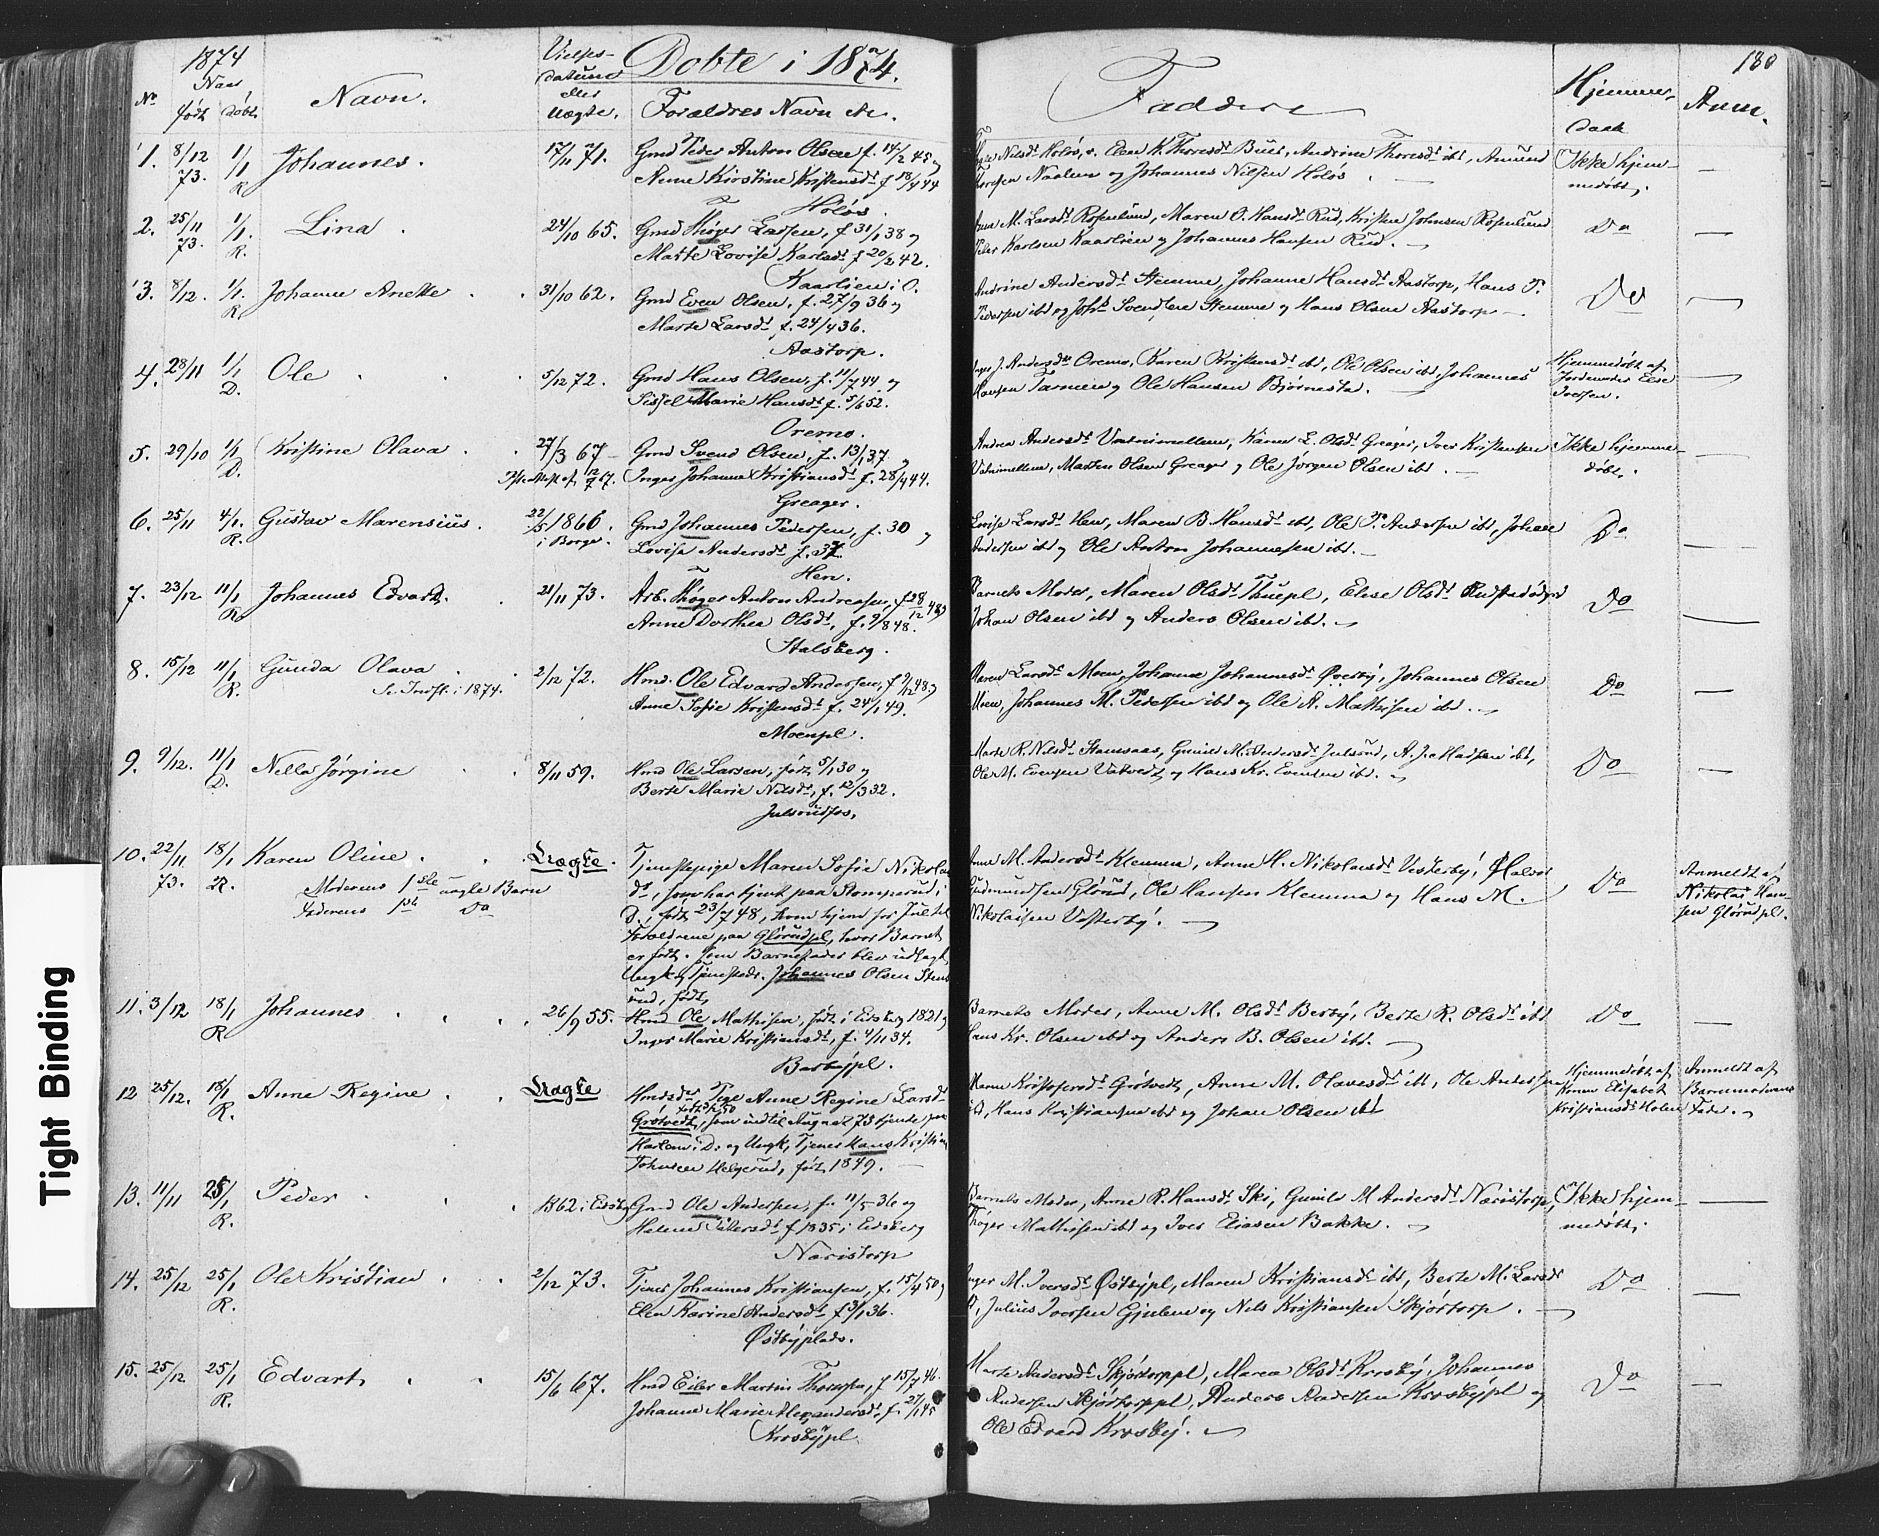 1874
Døbte i 1874.
Faddere
180
No
Naar
født
døbt
Navn.
Vielses-
datum
eller
uægte.
Forældres Navn &c.
Hjemme-
daab
Anm.
1. 8/12 73. 1/1 R. Johannes. 17/11 71. Gmd Peder Anton Olsen f. 14/2 45 og
Anne Kirstine Kristensdt f 18/4 44
Holøs.
Nilsdt Holøs, Elen K. Thoresdt Buer, Andrine Thoresdt ibt, Amund
Thoresen Naalum og Johannes Nilsen Holøs.
Ikke hjem-
medøbt. —
2. 25/11 73. 1/1. R. Lina. 24/10 65. Gmd Thøger Larsen, f. 31/1 38 og
Marte Lovise Karlsdt f 20/2 42.
Kaarlien i O.
M. Larsdt Rosenlund, Maren O. Hansdt Rud, Kristen Johnsen Rosenlund
Peder Karlsen Kaarlien og Johannes Hansen Rud. —
Do —
3. 8/12. 1/1. R. Johanne Anette 31/10 62. Gmd Even Olsen, f. 27/9 36 og
Marte Larsdt f. 24/4 36.
Aastorp.
Andrine Andersdt Stemme, Johanne Hansdt Aastorp, Hans P.
Pedersen ibt og Johs Svendsen Stemme og Hans Olsen Aastorp —
Do —
4. 28/11 1/1 D. Ole 5/12 72. Gmd Hans Olsen, f. 11/7 44. og
Sissel Marie Hansdt f. 5/6 52.
Oremo.
J. Andersdt Oremo, Karen Kristensdt ibt, Ole Olsen ibt, Johannes
Hansen Tarneie og Ole Hansen Bjørnestad.
Hjemmedøbt af
Jordemoder Else
Iversen. —
5. 29/10 1/1 D. Kristine Olava 27/3 67 Gmd Svend Olsen, f. 13/1 37 og
Inger Johanne Kristiansdt f. 28/4 44.
Greager.
Andrea Andersdt Vatnimellem, Karen L. Olsdt Greager, Iver Kristensen
Vatnimellem, Martin Olsen Greager og Ole Jørgen Olsen ibt. —
Ikke hjemme-
døbt. —
6. 25/11 4/1. R. Gustav Marensius. 22/5 1866. i Borge. Gmd Johannes Pedersen, f. 30 og
Lovise Andersdt f. 37.
Hen.
Lovise Larsdt Hen, Maren B. Hansdt ibt, Ole P. Andersen ibt, Johan
Andersen ibt og Ole Anton Johannesen ibt. —
Do —
7. 23/12 11/1 R. Johannes Edvard. 21/11 73. Arb. Thøger Anton Andreasen, f. 28/12 48 og
Anne Dorthea Olsdt, f. 9/8 48.
Stalsberg.
Barnets Moder, Maren Olsdt Thuepl, Elise Olsdt
Johan Olsen ibt og Anders Olsen ibt. —
Do —
8. 15/12 11/1 R. Gunda Olava 2/12 72. Hmd. Ole Edvard Andersen, f 9/12 48 og
Se i 1874.
Anne Sofie Kristensdt f. 24/1 49.
Moenpl.
Maren Larsdt Moen, Johanne Johannesdt Øverby, Johannes Olsen
Moen, Johannes M. Pedersen ibt og Ole A. Mathisen ibt. —
Do —
9. 9/12. 11/1 D. Nella Jørgine 8/11 59. Hmd Ole Larsen, født 5/1 30 og
Berte Marie Nilsdt, f. 12/3 32.
Julsrudfos,
Marte R. Nilsdt Stamsaas, Gunild M. Andersdt Julsrud, A. J. Madsen ibt,
Ole M. Evensen Vatvedt og Hans Kr. Evensen ibt. —
Do —
10. 22/11 73. 18/1 R. Karen Oline. Uægte. Tjenestepige Maren Sofie Nikolai
Moderens 1ste uægte Barn
Faderens 1ste Do
dt, som har tjent paa Stomperud i
D., født 23/7 48, kom hjem før Jul til
Forældrene paa Glørudpl, hvor Barnet
er født. Som Barnefader blev udlagt
Ungk. og Tjenestedr. Johannes Olsen
rud, født
Anne M. Andersdt Klemma, Anne H. Nikolaisdt Vesterby, Halvor
Gudmundsen Glørud, Ole Hansen Klemma og Hans M.
Nikolaisen Vesterby. —
Do
Anmeldt af
Nikolai Han-
sen Glørudpl.
11. 3/12 18/1 R Johannes 26/9 55. Hmd Ole Mathisen, født i Eidsberg 1821 og
Inger Marie Kristiansdt, f. 4/11 34.
Berbypl.
Barnets Moder, Anne M. Olsdt Berby, Berte R. Olsdt ibt
Hans Kr. Olsen ibt og Anders B. Olsen ibt. —
Do —
12 25/12. 18/1 R. Anne Regine Uægte Hmdsdt Pige Anne Regine Larsdt
Grøtvedt, som indtil August 73 tjente paa
Harlem i D. og Ungk, Tjener Hans Kristian
Johnsen Helgerud, født 1849. —
Maren Kristofersdt Grøtvedt, Anne M. Olavesdt ibt, Ole Andersen
ibt, Hans Kristiansen ibt og Johan Olsen ibt
Hjemmedøbt af
Konen Elisabet
Kristiansdt Holen
Anmeldt af
Barnemoderens
Fader. —
13. 11/11 25/1 R. Peder 1862 i Eidsbg Gmd Ole Andersen, f. 11/5 36 og
Helene f 1835 i Eidsberg
Naristorp
Barnets Moder, Anne R. Hansdt Ski, Gunild M Andersdt Naristorp,
Thøger Mathisen ibt og Iver Eliasen Bakke. —
Ikke hjem-
medøbt. —
14. 25/12 25/1 R. Ole Kristian 2/12 73. Tjener Johannes Kristiansen, f. 15/4 50 og
Elen Karine Andersdt f 3/1 36.
Østbyplads.
Inger M. Iversdt Østbypl, Maren Kristiansdt ibt, Berte M. Larsdt
ibt, Julius Iversen Gjulem og Nils Kristiansen Skjørtorp. —
Do —
15. 25/12 25/1 R. Edvart 15/6 67. Hmd Eiler Martin Thoresen, f 15/7 46.
Johanne Marie Alexandersdt, f. 27/1 45
Krosbypl
Marte Andersdt Skjørtorppl, Maren Olsdt Krosby, Johannes
Andersen Skjørtorppl, Anders Andersen Krosbypl og
Ole Edvard Krosby. —
Do —
Tight Binding